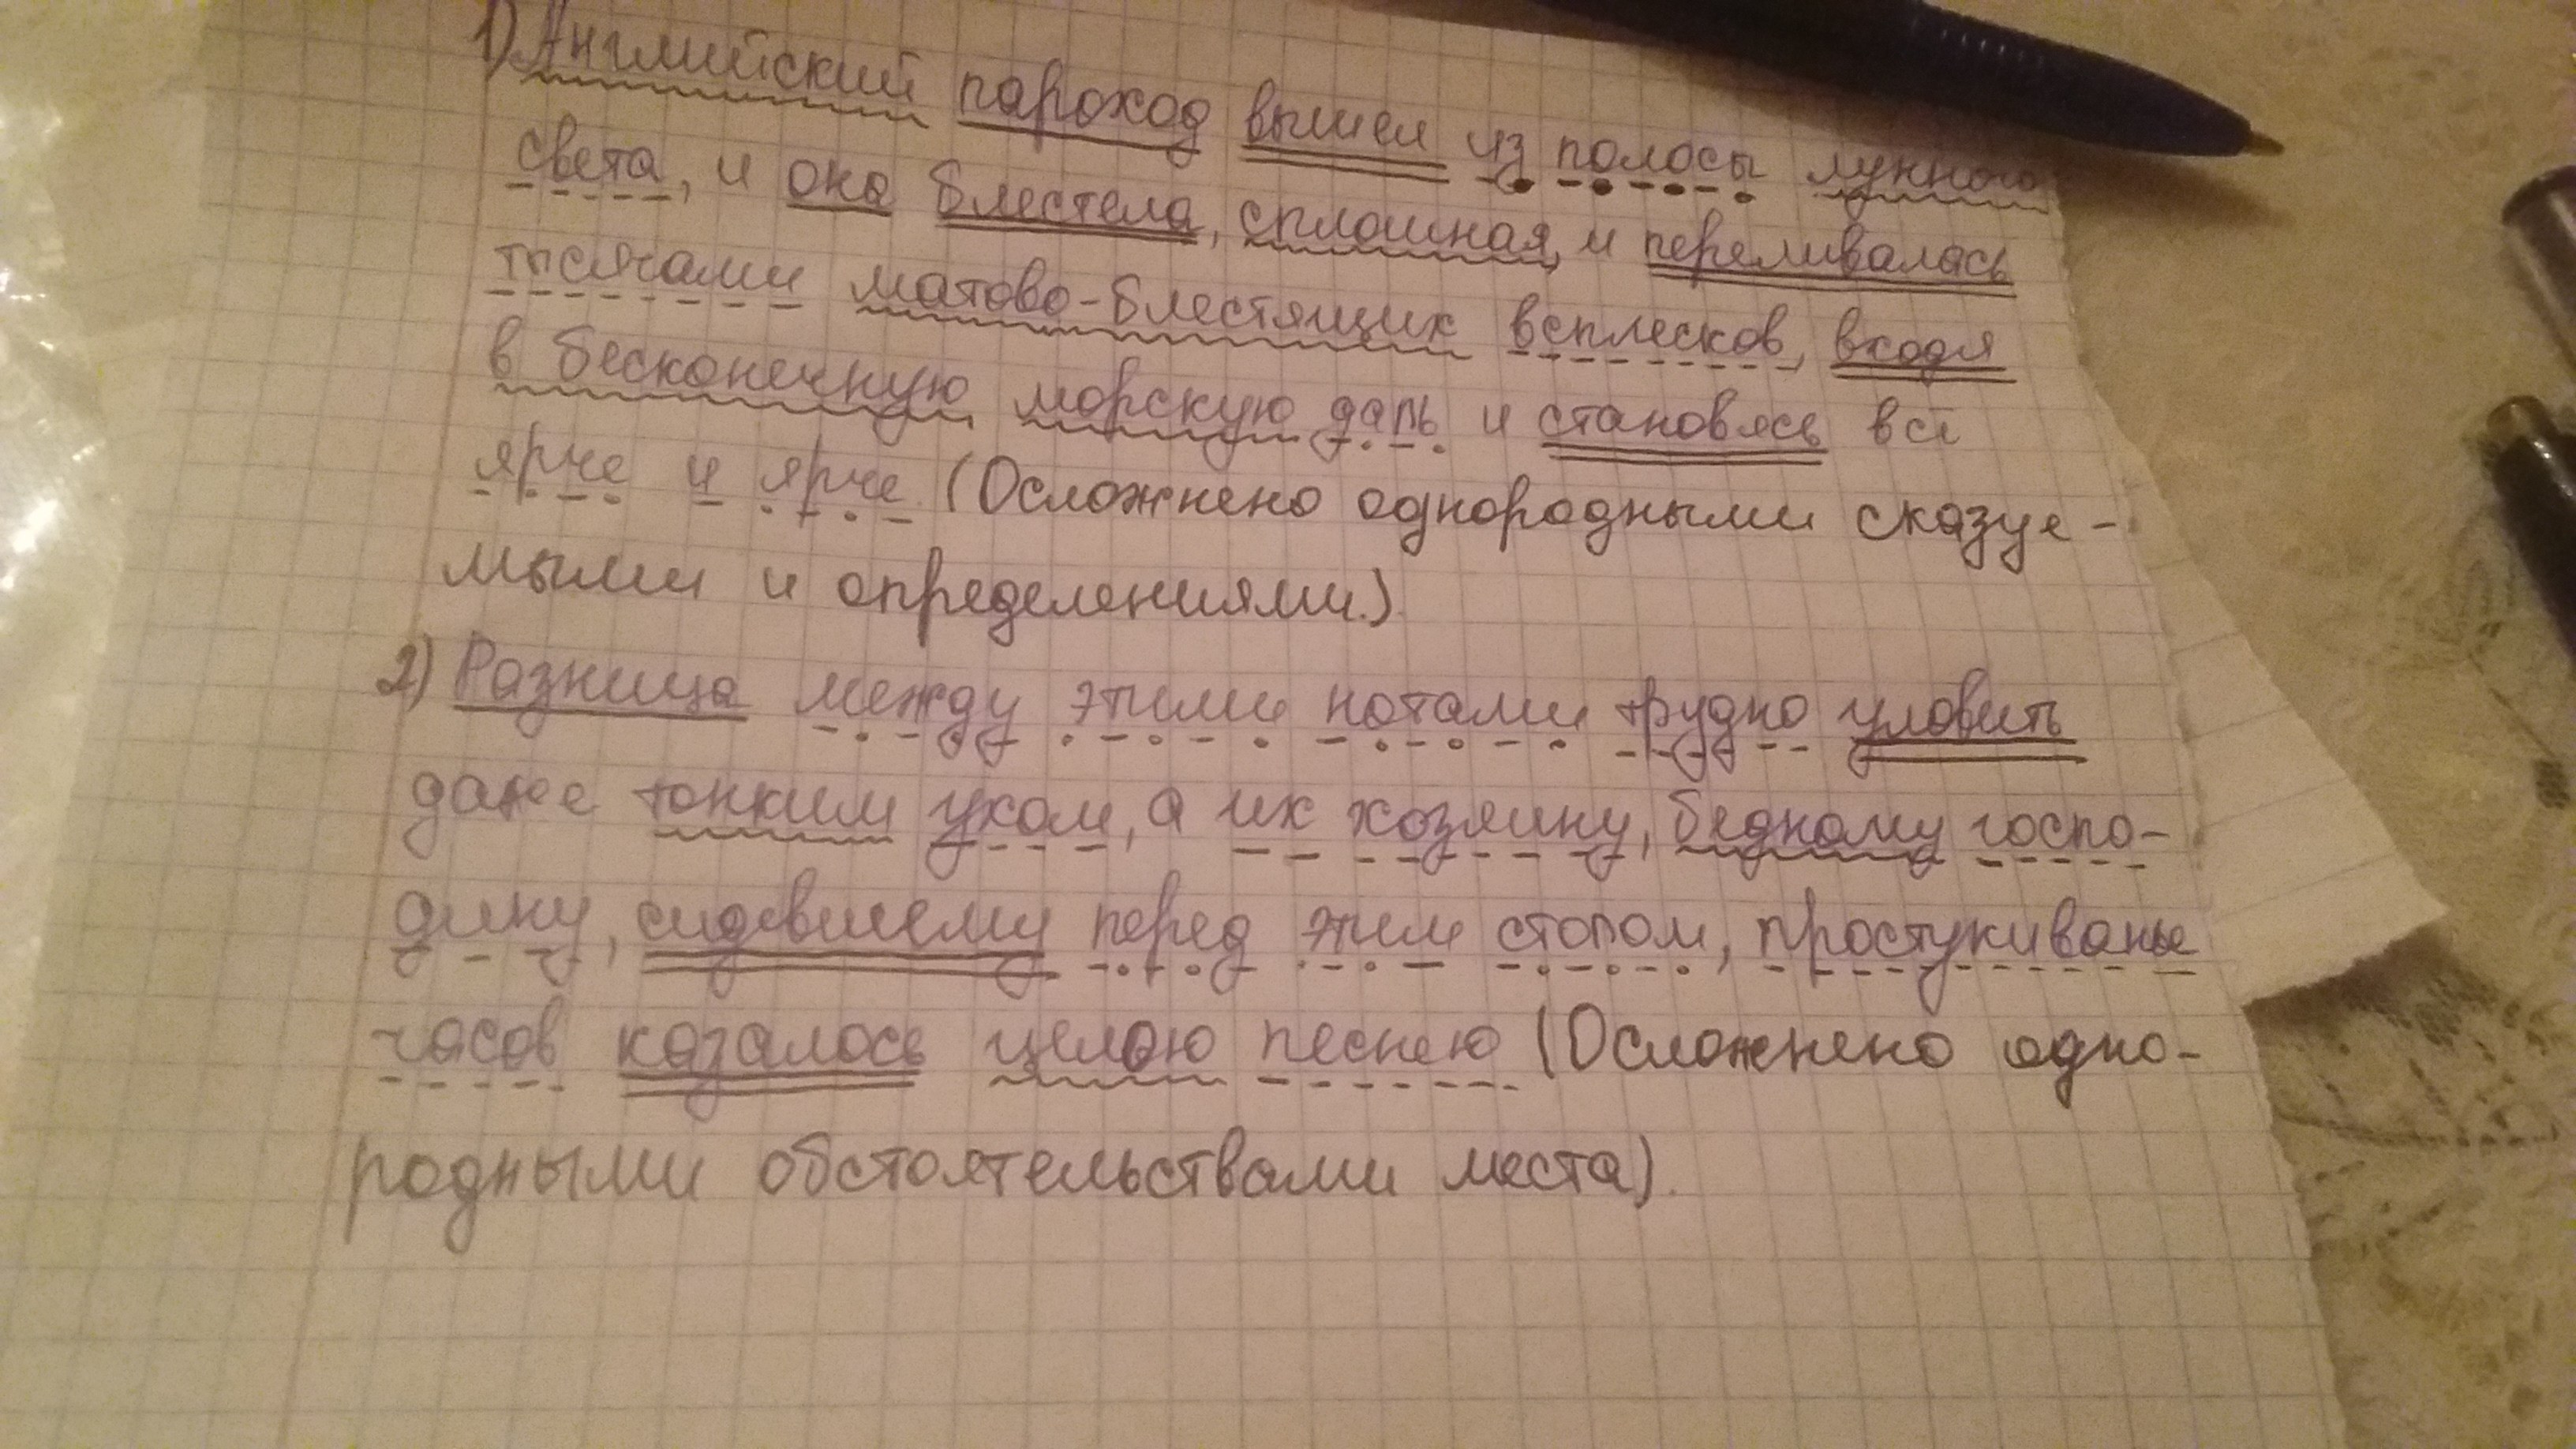 1) Английский пароход вышел из полосы лунного
света, и она блестела, сплошная, и переливалась
тысячами матово-блестящих всплесков, входя
в бесконечную морскую даль и становясь всё
ярче и ярче. (Осложнено однородными сказуе-
мыми и определениями.)
2) Разница между этими нотами трудно уловить
даже тонким ухом, а их хозяину, бедному госпо-
дину, сидевшему перед этим столом, простукиванье
часов казалось целою песнею (Осложнено одно-
родными обстоятельствами места).